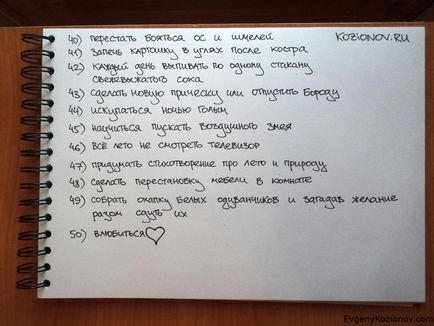 40) перестать бояться ос и шмелей
KOZIONOV.RU
41) запечь картошку в углях после костра
42) каждый день выпивать по одному стакану
свежевыжатого сока
43) сделать новую прическу или отпустить бороду
44) искупаться ночью голым
45) научиться пускать воздушного змея
46) всё лето не смотреть телевизор
47) придумать стихотворение про лето и природу
48) сделать перестановку мебели в комнате
49) собрать охапку белых одуванчиков и загадав желание
разом сдуть их
50) влюбиться
EvgenyKozionov.com